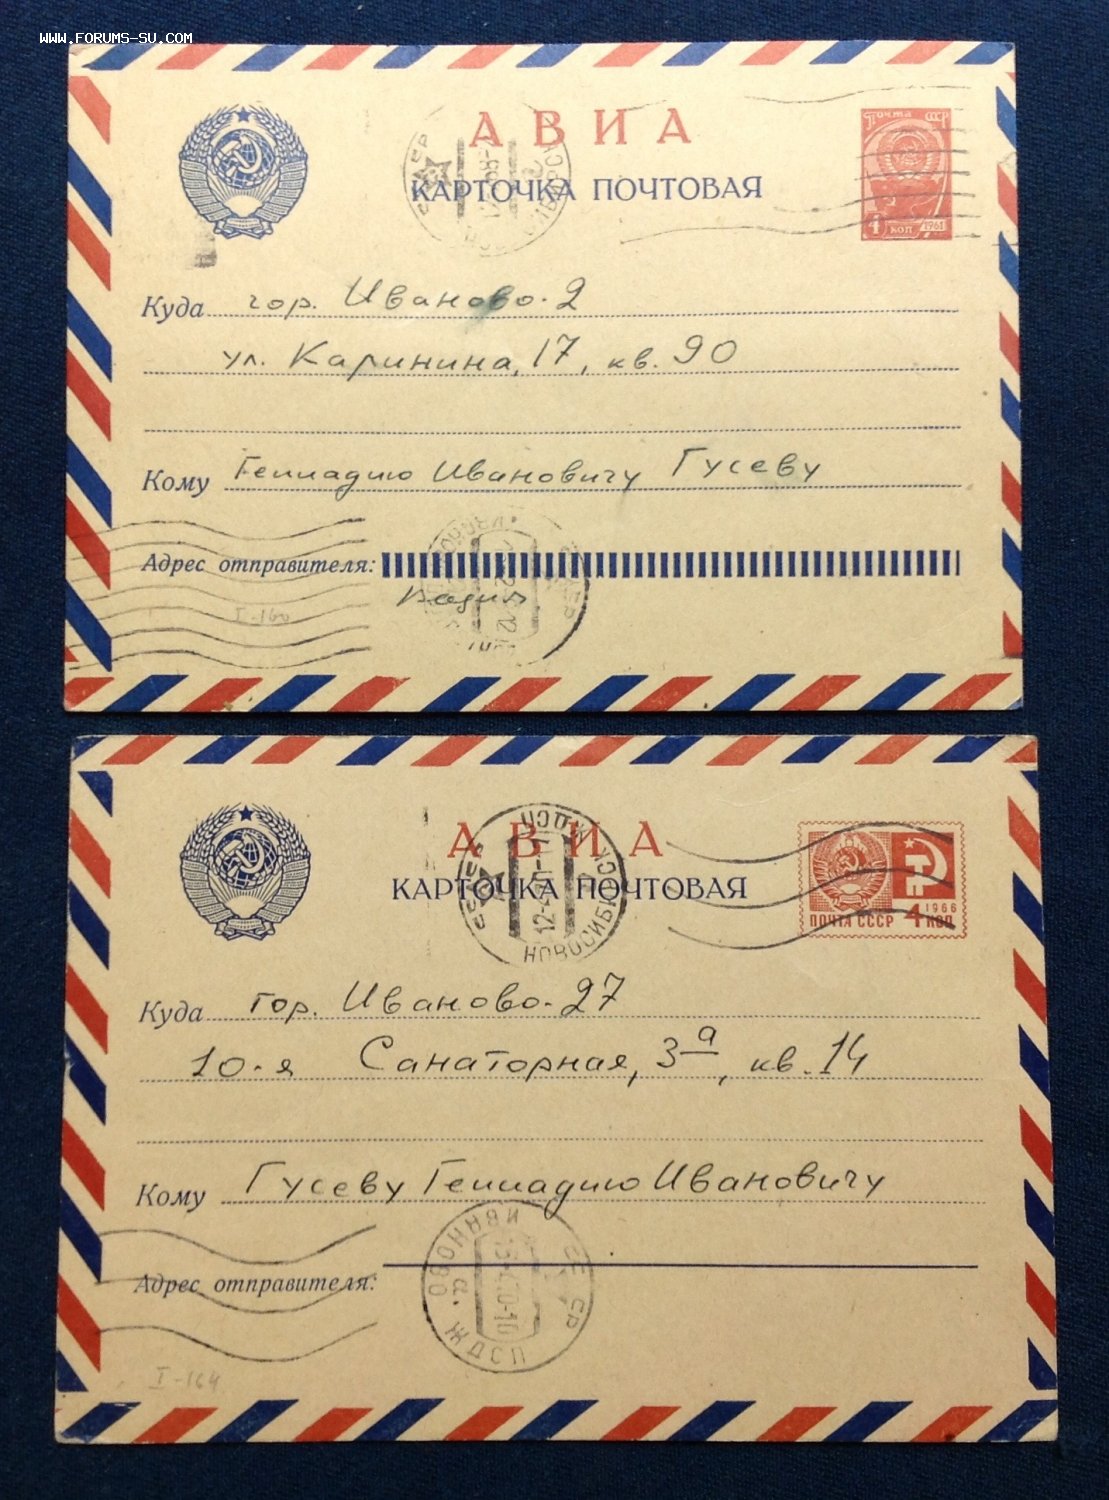 WWW.FORUMS-SU.COM
АВИА
КАРТОЧКА ПОЧТОВАЯ
ПОЧТА СССР
4 КОП 1961
Куда гор. Иваново-2
ул. Калинина, 17, кв. 90
Кому Геннадию Ивановичу Гусеву
Адрес отправителя:
I-160
АВИА
КАРТОЧКА ПОЧТОВАЯ
СССР
НОВОСИБИРСК
ЖДСП
ПОЧТА СССР 4 КОП 1966
Куда гор. Иваново-27
10-я Санаторная, 3-а, кв. 14
Кому Гусеву Геннадию Ивановичу
Адрес отправителя:
ИВАНОВО
ЖДСП
I-164